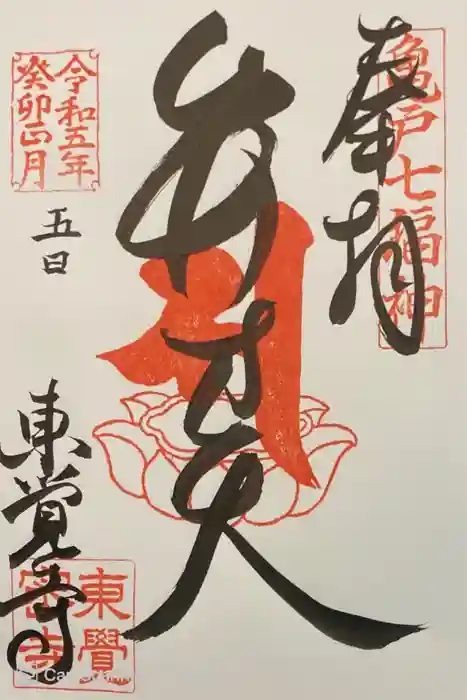 亀戸七福神
奉拝
弁才天
令和五年
癸卯正月
五日
東覚寺
東覺
密寺